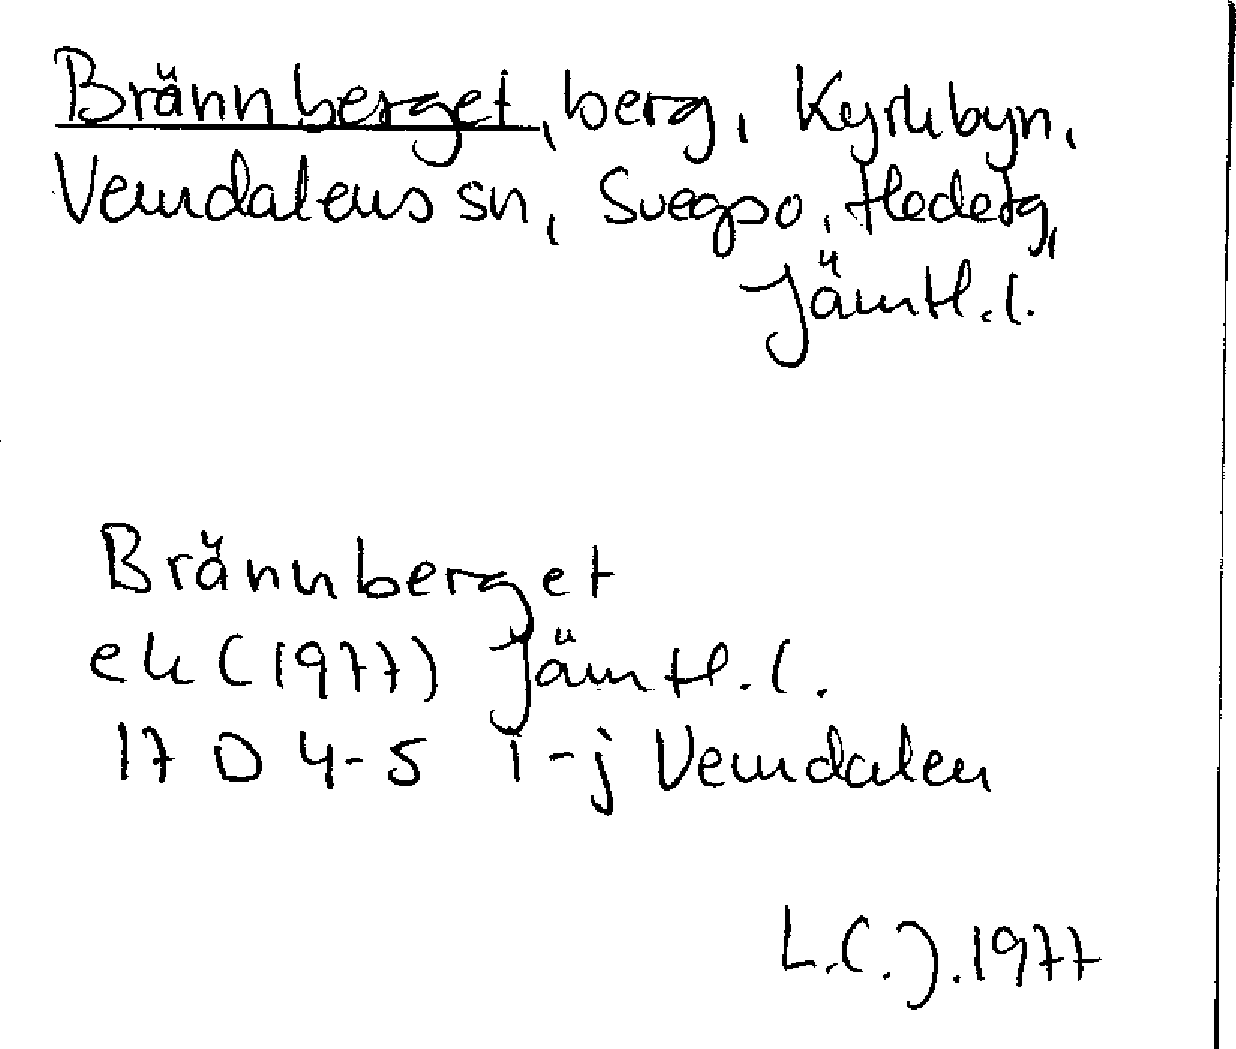 Brännberget, berg, Kyrkbyn,
Vemdalens sn, Svegs po, Hedetg,
Jämtl. l.
Brännberget
ek (1977) Jämtl. l.
17 D 4-5 i-j Vemdalen
L.C.J. 1977